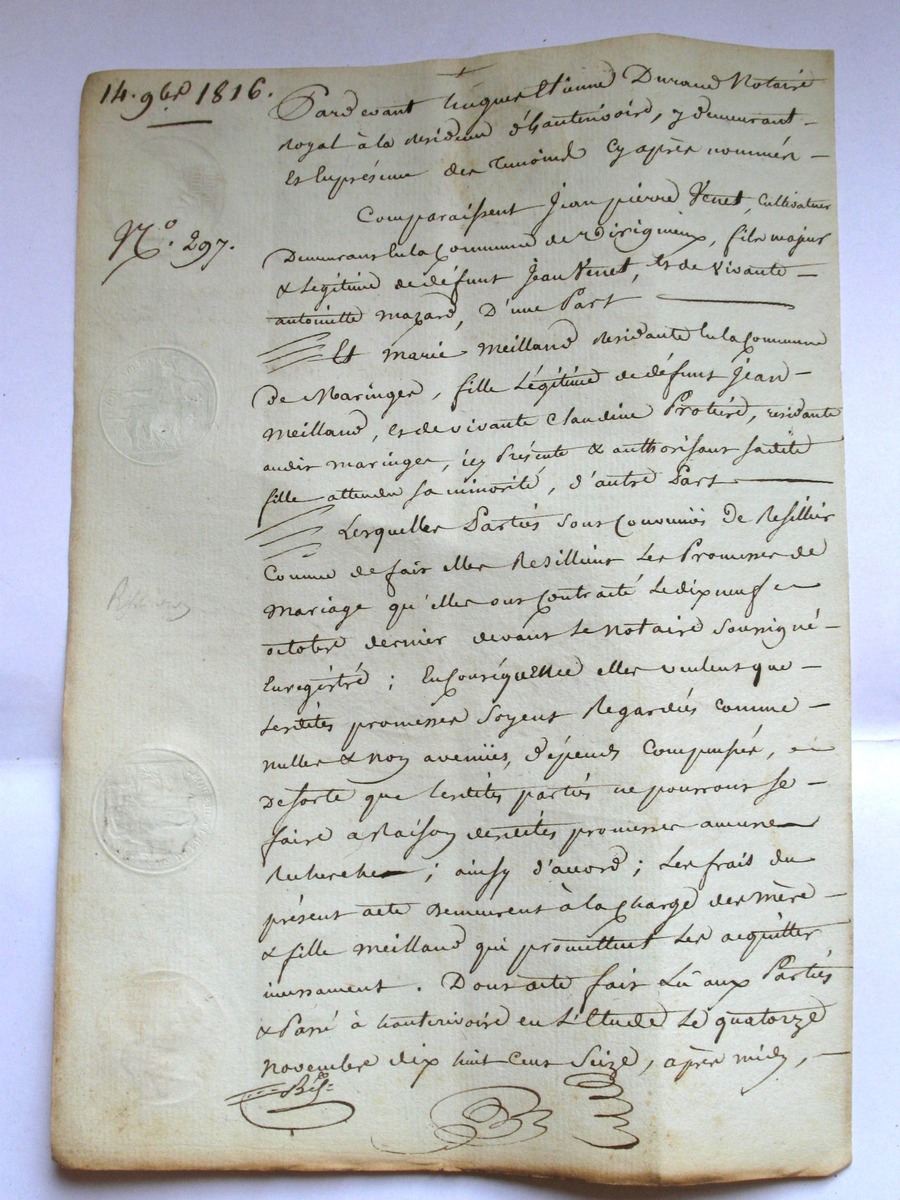 14. 9bre 1816.
Pardevant hugues Etienne Durand Notaire
royal à la residence d'hauterivoire, y demeurant
et En présence des temoins Cy après nommés
N.° 297.
Comparaissent Jean pierre Venet, Cultivateur
Demeurant En la Commune de Virigneux, fils majeur
& Légitime de défunt Jean Venet, Et de vivante
antoinette mazard, D'une Part
Et marie Meilland residante En la Commune
De Maringes, fille Légitime de défunt Jean
Meilland, Et de vivante Claudine Protière, residante
audit maringes, icy Présente & authorisant sadite
fille attendu sa minorité, d'autre Part
Lesquelles Parties sont Convenües De Resillier
Comme de fait elles Resillient Les Promesses de
Mariage qu'elles ont Contracté Le dix neuf
octobre dernier devant Le Notaire soussigné
Enregistré ; En Conséquence elles veulent que
Lesdites promesses soyent Regardées comme
nulles & non avenües, dépends Compensés,
De sorte que Lesdites parties ne pourront se
faire a Raison desdites promesses aucune
Recherches ; ainsy d'accord ; Les frais du
présent acte Demeurent à la Charge des mère
& fille Meilland qui promettent Les acquitter
incessament. Dont acte fait Lû aux Parties
& Passé à hauterivoire en L'Etude Le quatorze
novembre dix huit Cent Seize, après midy,